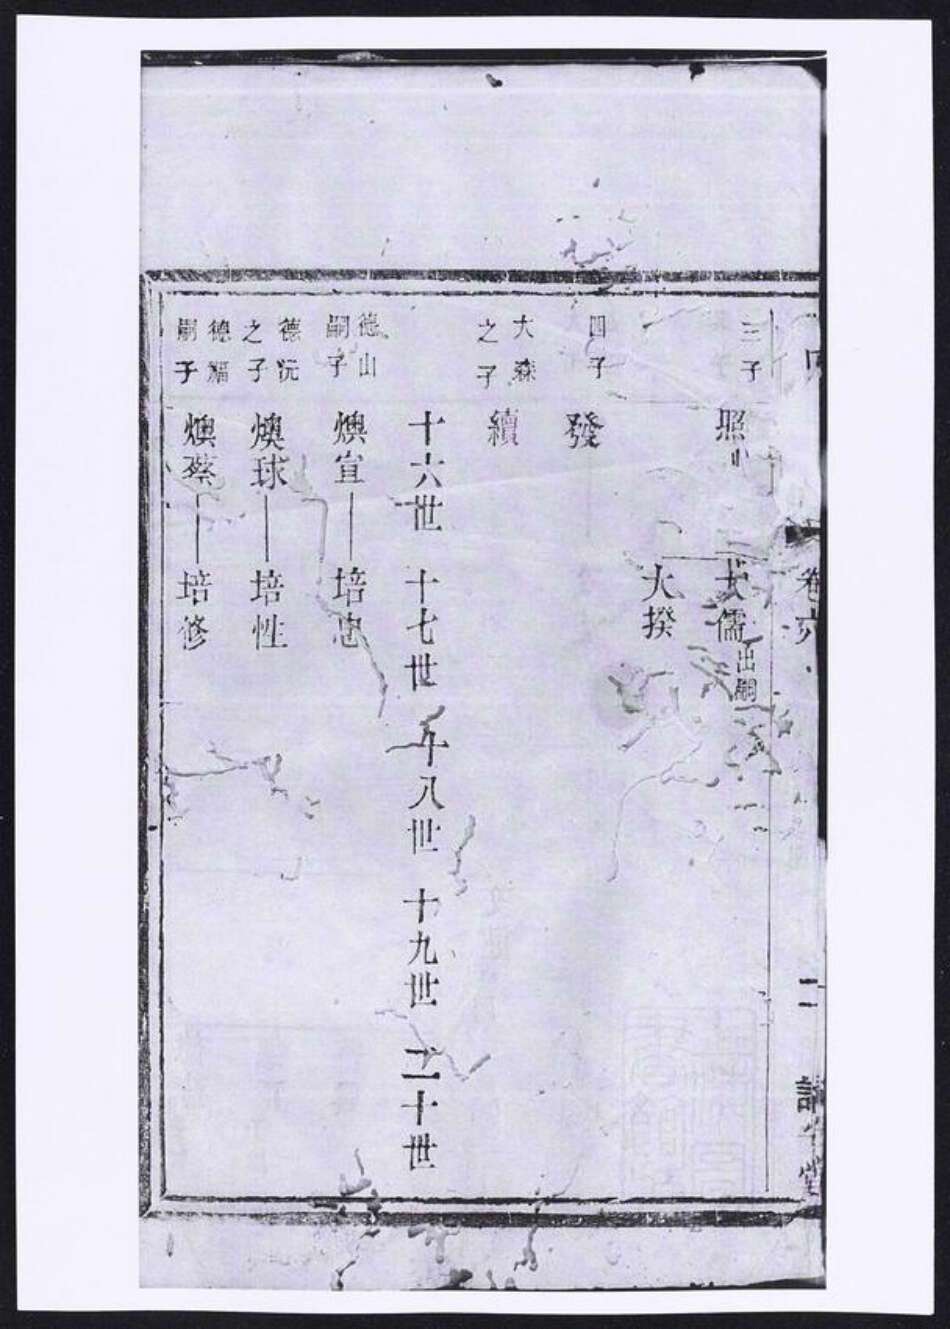 卷六
二
三子
照
大儒出嗣
大揆
四子
發
大森之子
續
十六世 十七世 十八世 十九世 二十世
德山嗣子
燠宣 培忠
德沅之子
燠球 培性
德福嗣子
燠蔡 培修